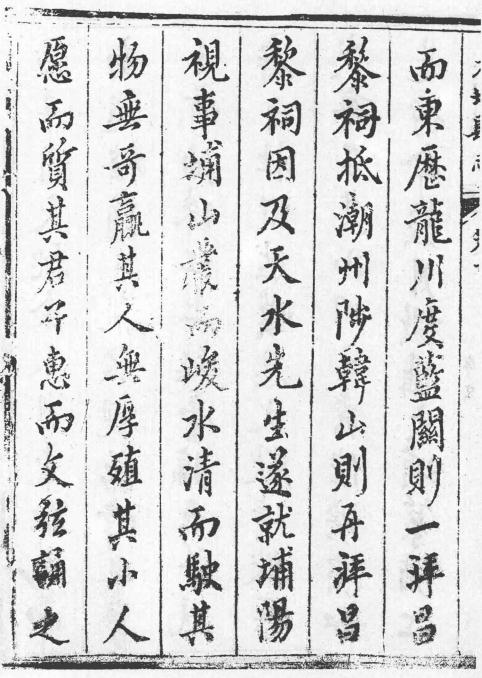 而東歷龍川度藍關則一拜昌
黎祠抵潮州陟韓山則再拜昌
黎祠因及天水先生遂就埔陽
視事埔山叢而峻水清而駛其
物無奇贏其人無厚殖其小人
愿而質其君子惠而文絃誦之